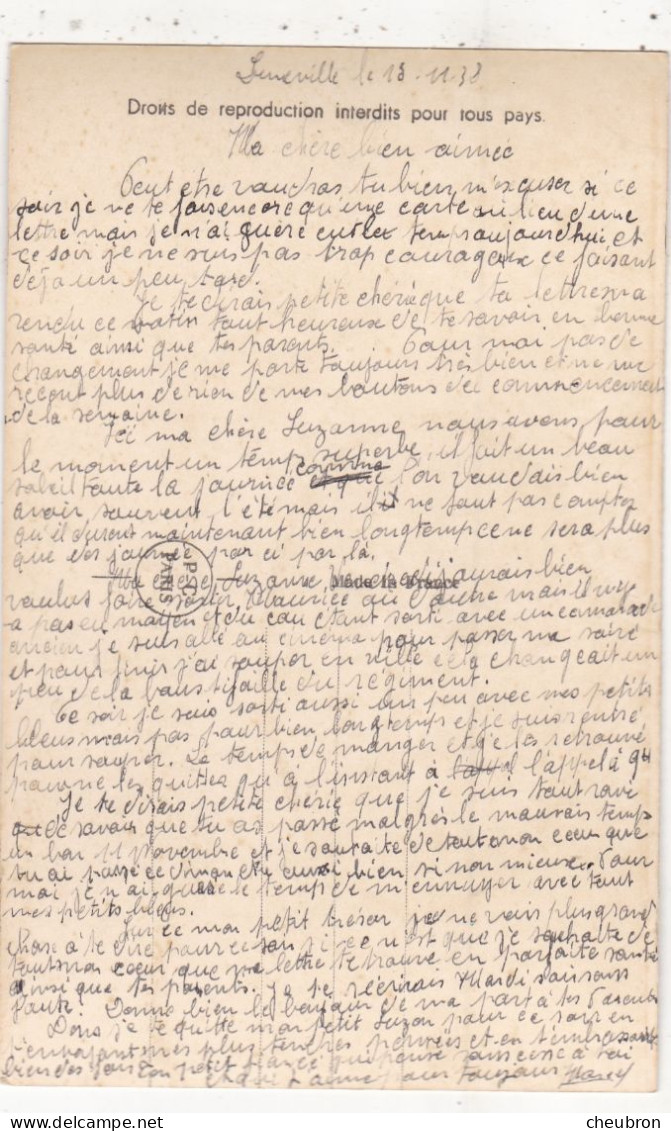 Luneville le 13-11-38
Droits de reproduction interdits pour tous pays.
Ma chère bien aimée
Peut etre voudras tu bien m'excuser si ce
soir je ne te fais encore qu'une carte au lieu d'une
lettre mais je n'ai guère eut le temps aujourd'hui et
ce soir je ne suis pas trop courageux ce faisant
déjà un peu tard.
Je te dirais petite chérie que ta lettre m'a
rendu ce matin tout heureux de te savoir en bonne
santé ainsi que tes parents. Pour moi pas de
changement je me porte toujours très bien et ne me
plus de rien de mes boutons du commencement
de la semaine.
Ici ma chère Suzanne nous avons pour
le moment un temps superbe, il fait un beau
soleil toute la journée comme l'on voudrais bien
avoir souvent l'été mais il ne faut pas compter
qu'il durent maintenant bien longtemp ce ne sera plus
que des journée par ci par là.
Ma chère Suzanne j'aurais bien
voulus faire Maurice ou d'autre mais il n'y
a pas eu moyen et du coup étant sorti avec un camarade
ancien je suis allé au cinéma pour passer ma soiré
et pour finir j'ai souper en ville cela changeait un
peu de la boustifaille du régiment.
Ce soir je suis sorti aussi un peu avec mes petits
bleus mais pas pour bien longtemp et je suis rentré
pour souper. Le temps de manger et je les retrouvé
pour ne les quitter qu'à l'instant à l'appel à 9h
Je te dirais petite chérie que je suis tout ravé
de savoir que tu as passé malgrès le mauvais temps
un bon 11 Novembre et je souhaite de tout mon coeur que
tu ai passé ce dimanche aussi bien si non mieux. Pour
moi je n'ai guère le temps de m'ennuyer avec tout
mes petits bleus.
Sur ce mon petit trésor je ne vois plus grand
chose à te dire pour ce soir si ce n'est que je souhaite de
tout mon coeur que ma lettre te trouve en parfaite santé
ainsi que tes parents. Je te récrirais Mardi sans
faute. Donne bien le bonjour de ma part à tes Parents
Donc je te quitte mon petit Suzon pour ce soir en
t'envoyant mes plus tendres pensées et en t'embrassant
bien des fois ton petit fiancé qui pense sans cesse à toi
et qui t'aime pour toujours Marcel
P.C.
PARIS
Made in France
www.delcampe.net
cheubron